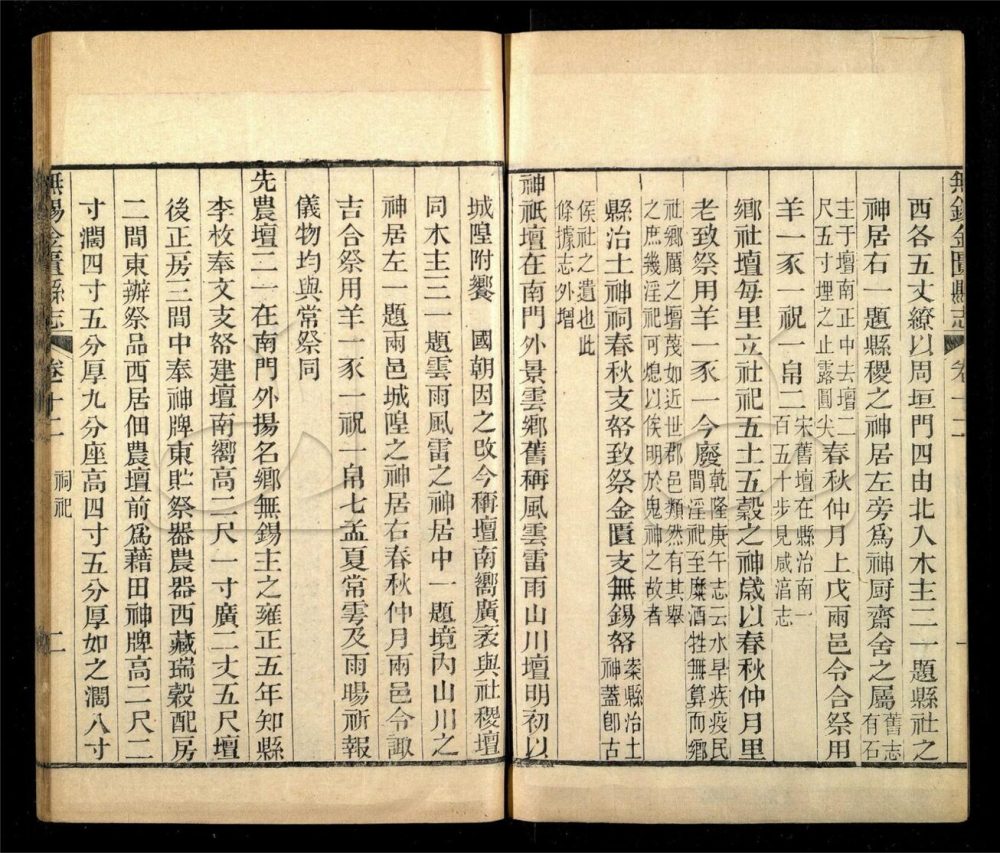 無錫金匱縣志 卷十二 一
西各五丈繚以周垣門四由北入木主二一題縣社之
神居右一題縣稷之神居左旁爲神厨齋舍之屬舊志有石
主于壇南正中去壇二尺五寸埋之止露圓尖春秋仲月上戊兩邑令合祭用
羊一豕一祝一帛二宋舊壇在縣治南一百五十步見咸湻志
鄉社壇每里立社祀五土五穀之神歲以春秋仲月里
老致祭用羊一豕一今廢乾隆庚午志云水旱疾疫民間淫祀至糜酒牲無算而鄉
社鄉厲之壇茂如近世郡邑類然有其舉之庶幾淫祀可熄以俟明於鬼神之故者
縣治土神祠春秋支帑致祭金匱支無錫帑案縣治土神蓋卽古
侯社之遺也此條據志外增
神祇壇在南門外景雲鄉舊稱風雲雷雨山川壇明初以
城隍附饗 國朝因之改今稱壇南嚮廣袤與社稷壇
同木主三一題雲雨風雷之神居中一題境內山川之
神居左一題兩邑城隍之神居右春秋仲月兩邑令諏
吉合祭用羊一豕一祝一帛七孟夏常雩及雨暘祈報
儀物均與常祭同
先農壇二一在南門外揚名鄉無錫主之雍正五年知縣
李枚奉文支帑建壇南嚮高二尺一寸廣二丈五尺壇
後正房三間中奉神牌東貯祭器農器西藏瑞穀配房
二間東辦祭品西居佃農壇前爲藉田神牌高二尺二
寸濶四寸五分厚九分座高四寸五分厚如之濶八寸
無錫金匱縣志 卷十二 祠祀 二